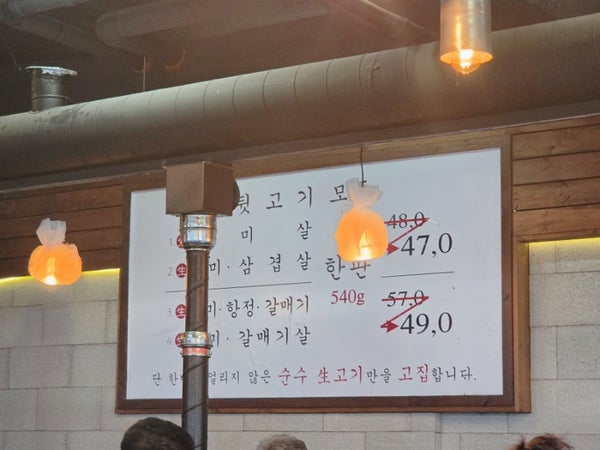 뒷고기모
1 미 살
48,0
47,0
2 生 미·삼겹살 한판
3 生 미·항정·갈매기 540g
57,0
49,0
4 生 미·갈매기살
단 한 얼리지 않은 순수 生고기만을 고집합니다.